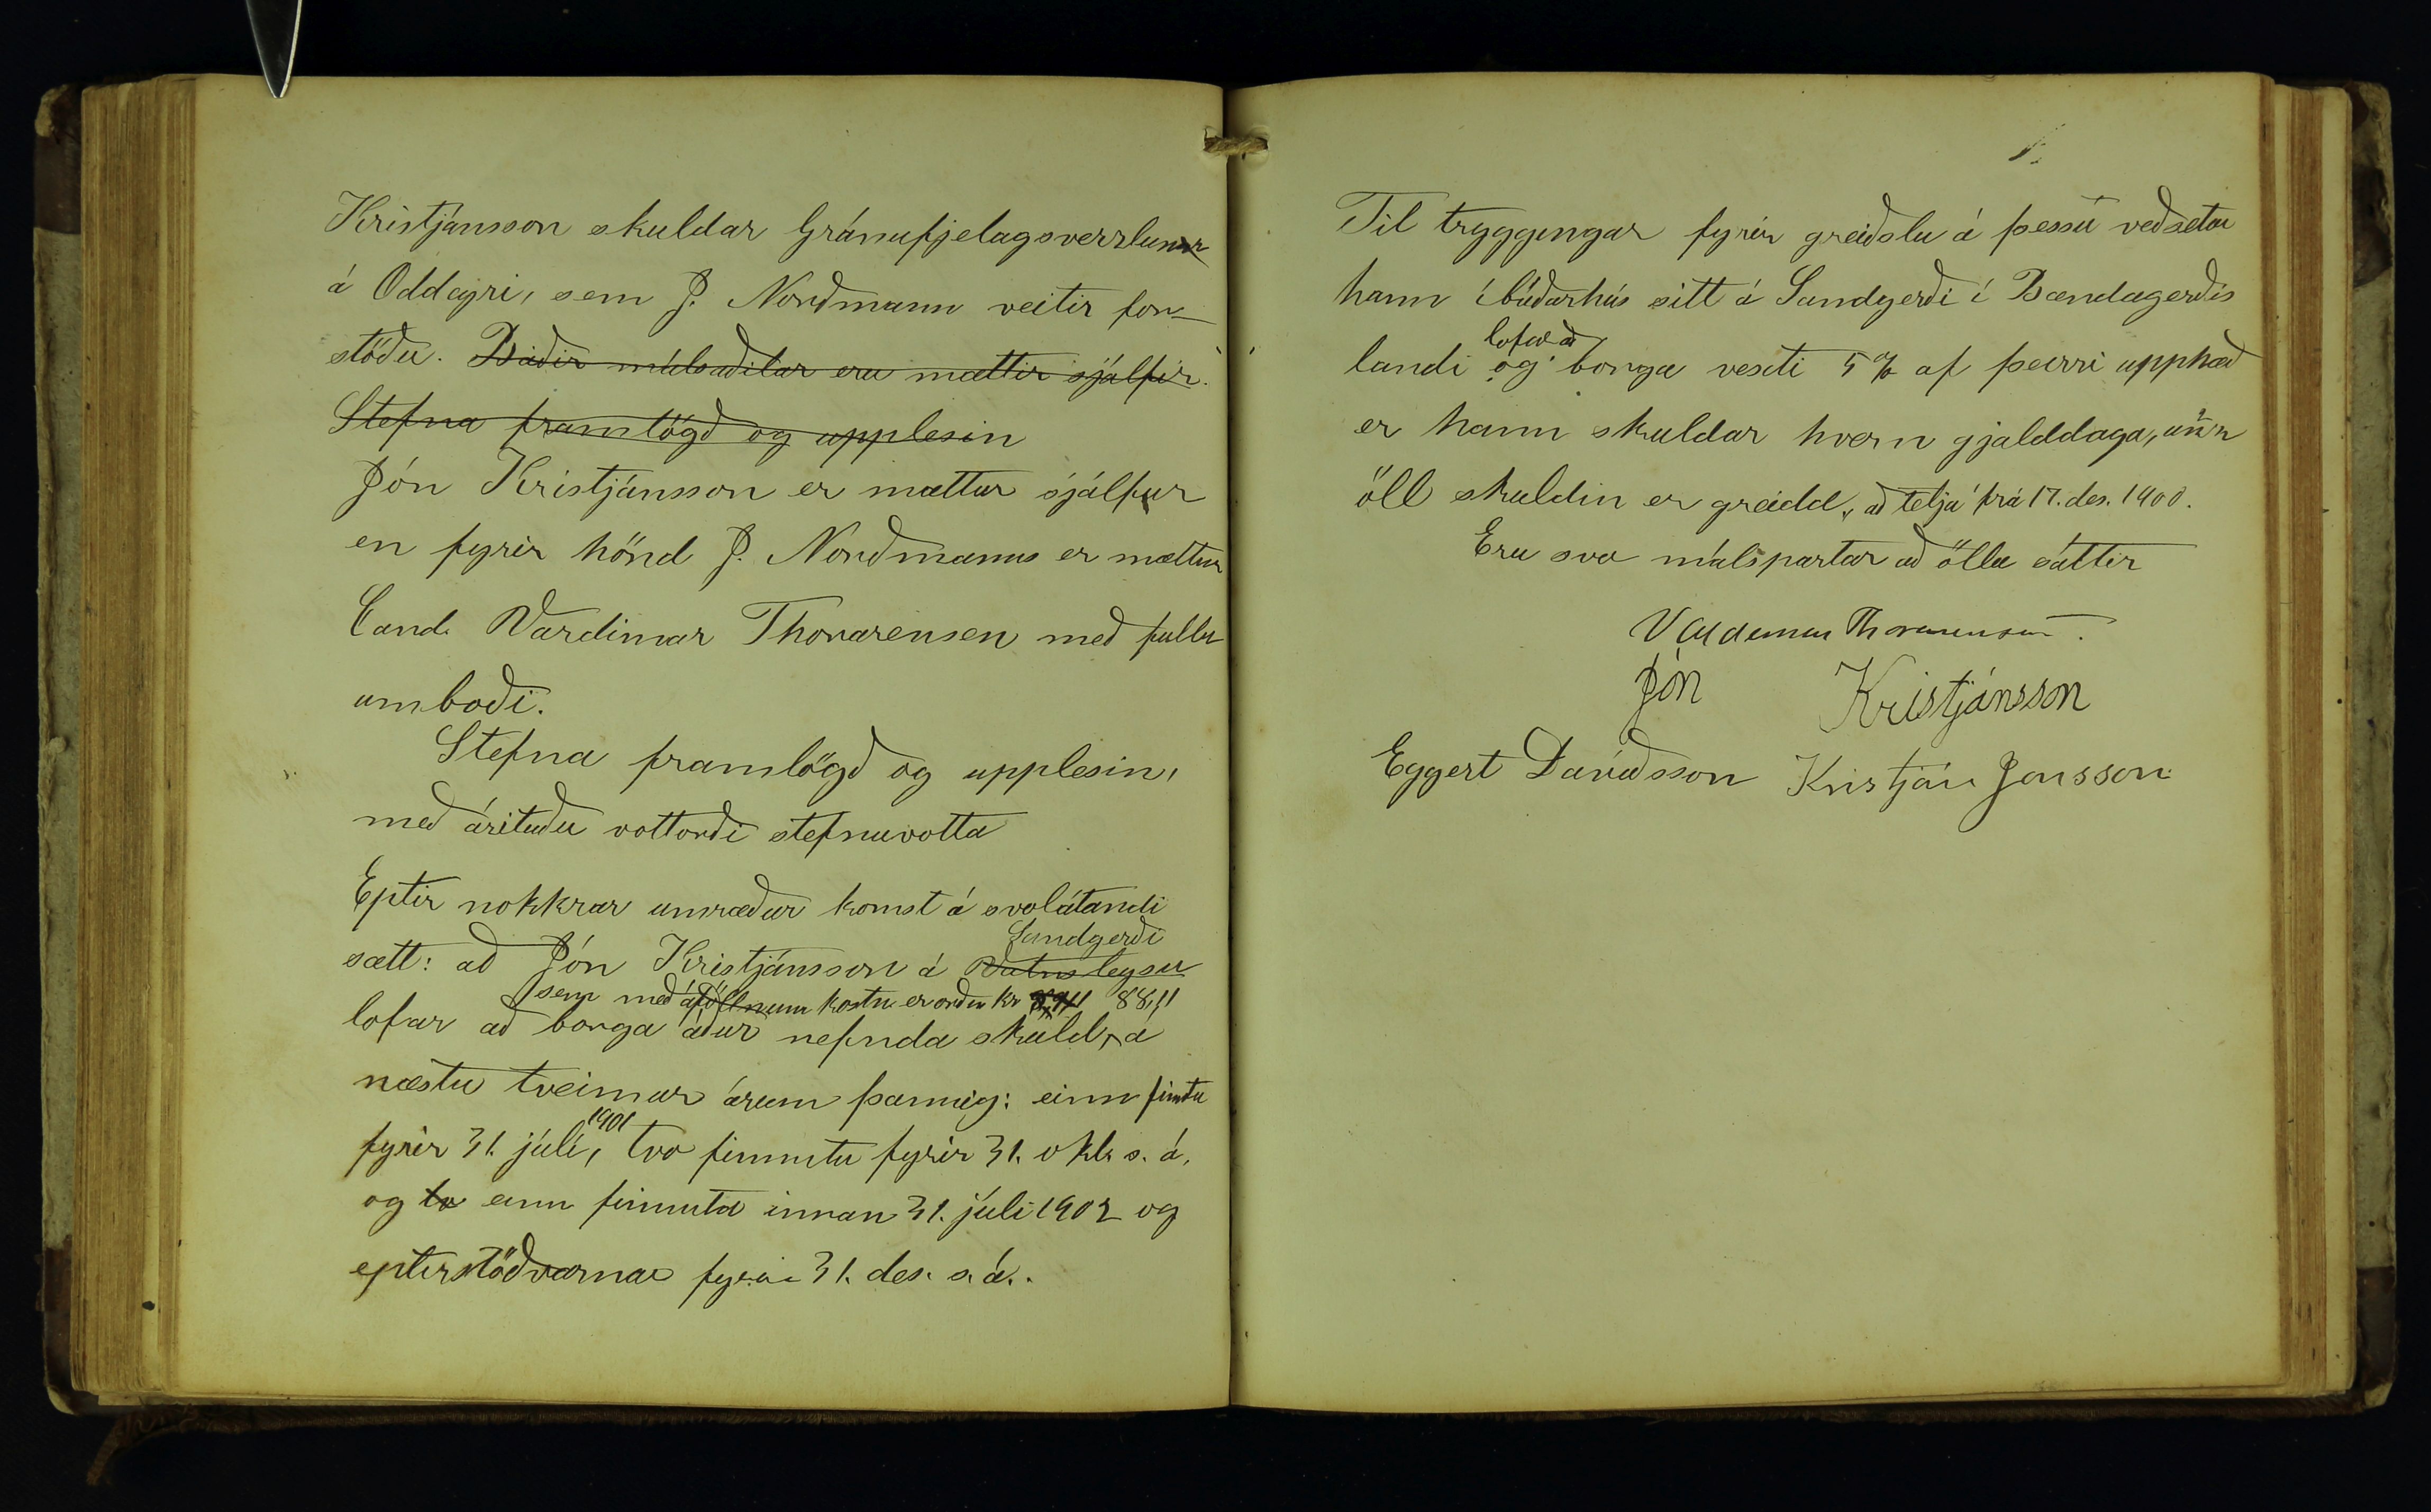 Kristjánsson skuldar Gránufjelagsverzlunar
á Oddeyri, sem J. Norðmann veitir for-
stöðu. Báðir málsaðilar eru mættir sjálfir.
Stefna framlögð og upplesin
Jón Kristjánsson er mættur sjálfur
en fyrir hönd J. Norðmanns er mættur
Cand. Vardimar Thorarensen með fullu
umboði.
Stefna framlögð og upplesin,
með árituðu vottorði stefnuvotta
Eptir nokkrar umræður komst á svolátandi
Sandgerði
sætt: að Jón Kristjánsson á Vatnsleysu
sem með áföllnum kostn. er orðin kr 88,11
lofar að borga áður nefnda skuld, á
næstu tveimur árum þannig: einn fimtu
1901
fyrir 31. júlí, tvo fimmtu fyrir 31. okt. s. á.
og tv einn fimmta innan 31. júlí 1902 og
eptirstöðvarnar fyrir 31. des. s. á..
Til tryggingar fyrir greiðslu á þessu veðsetur
hann íbúðarhús sitt á Sandgerði í Bændagerðis
lofar að
landi og borga vexti 5% af þeirri upphæð
er hann skuldar hvern gjalddaga, unz
öll skuldin er greidd, að telja frá 17. des. 1900.
Eru svo málspartar að öllu sáttir
Valdemar Thorarensen.
Jón Kristjánsson
Eggert Davíðsson Kristján Jónsson